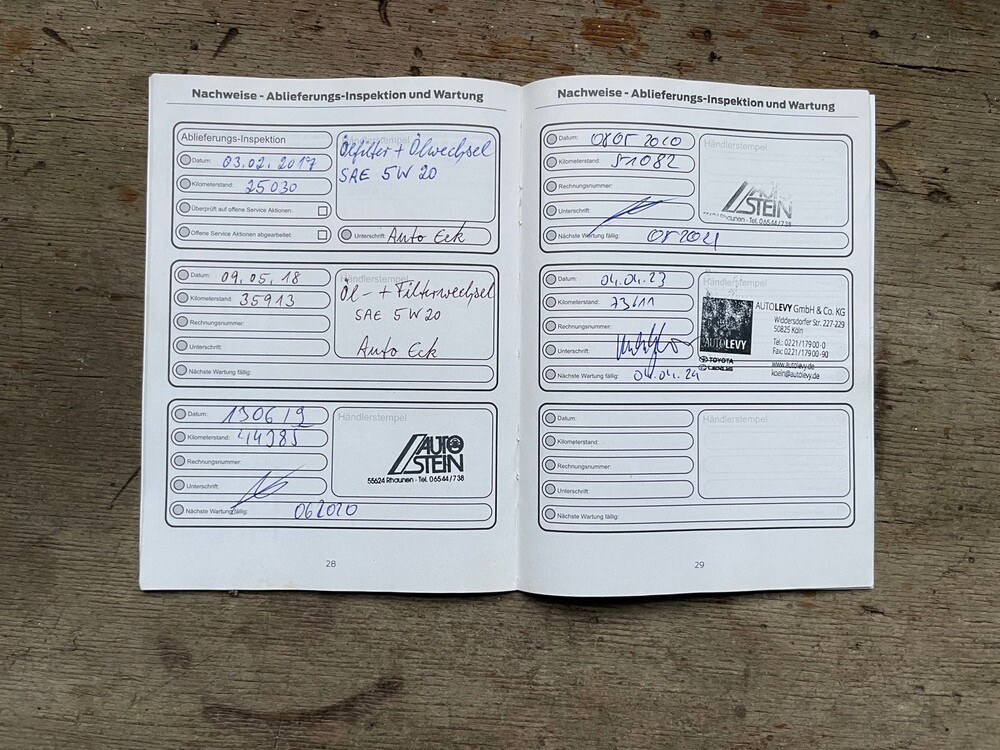 Nachweise - Ablieferungs-Inspektion und Wartung
Ablieferungs-Inspektion
Datum: 03.02.2017
Kilometerstand: 25030
Überprüft auf offene Service Aktionen:
Offene Service Aktionen abgearbeitet:
Händlerstempel
Ölfilter + Ölwechsel
SAE 5W20
Unterschrift: Auto Eck
Datum: 09.05.18
Kilometerstand: 35913
Rechnungsnummer:
Unterschrift:
Nächste Wartung fällig:
Händlerstempel
Öl- + Filterwechsel
SAE 5W20
Auto Eck
Datum: 130619
Kilometerstand: 44985
Rechnungsnummer:
Unterschrift:
Nächste Wartung fällig: 062020
Händlerstempel
AUTO
STEIN
55624 Rhaunen - Tel. 06544/738
28
Nachweise - Ablieferungs-Inspektion und Wartung
Datum:
Kilometerstand: 51082
Rechnungsnummer:
Unterschrift:
Nächste Wartung fällig:
Händlerstempel
AUTO
STEIN
Rhaunen - Tel. 06544/738
Datum: 04.04.23
Kilometerstand: 73611
Rechnungsnummer:
Unterschrift:
Nächste Wartung fällig: 04.04.24
Händlerstempel
AUTOLEVY
TOYOTA
LEXUS
AUTOLEVY GmbH & Co. KG
Widdersdorfer Str. 227-229
50825 Köln
Tel.: 0221/17900-0
Fax: 0221/17900-90
www.autolevy.de
koeln@autolevy.de
Datum:
Kilometerstand:
Rechnungsnummer:
Unterschrift:
Nächste Wartung fällig:
Händlerstempel
29